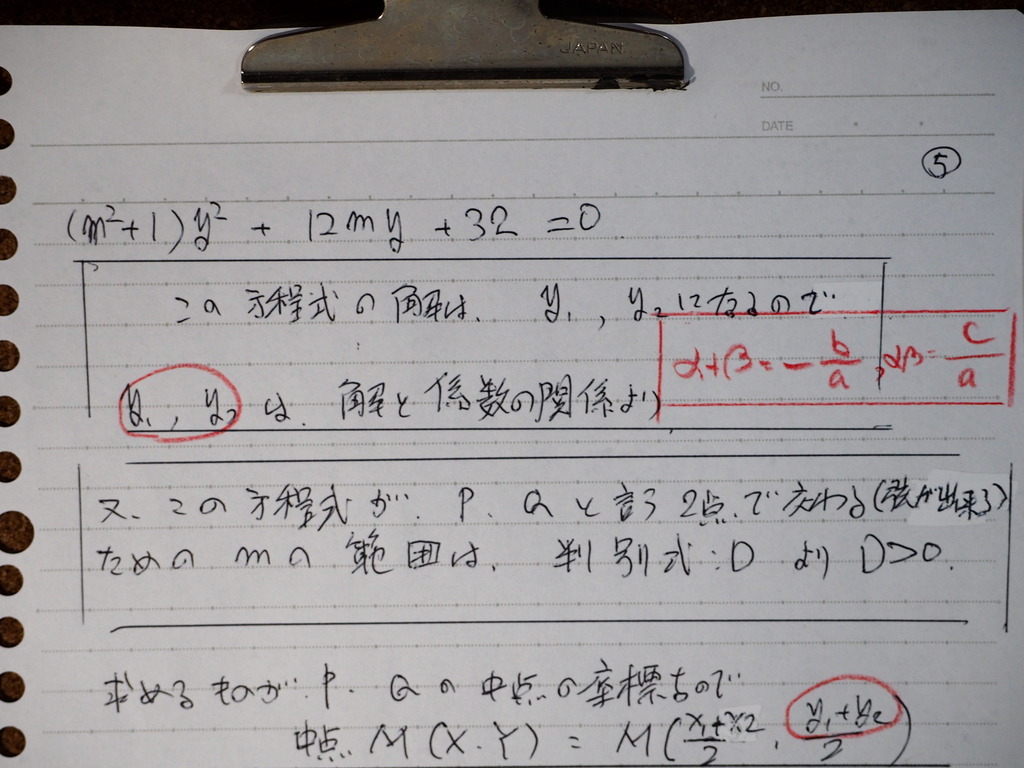 JAPAN
NO.
DATE
⑤
(m²+1)y² + 12my + 32 = 0
この方程式の解は、 y₁, y₂になるので
α+β = -b/a, αβ = c/a
y₁, y₂ は、解と係数の関係より
又、この方程式が、P、Qと言う2点で交わる(弦が出来る)
ための mの範囲は、判別式:D より D>0.
求めるものが P、Qの中点の座標なので
中点 M(X.Y) = M(x₁+x₂/2, y₁+y₂/2)